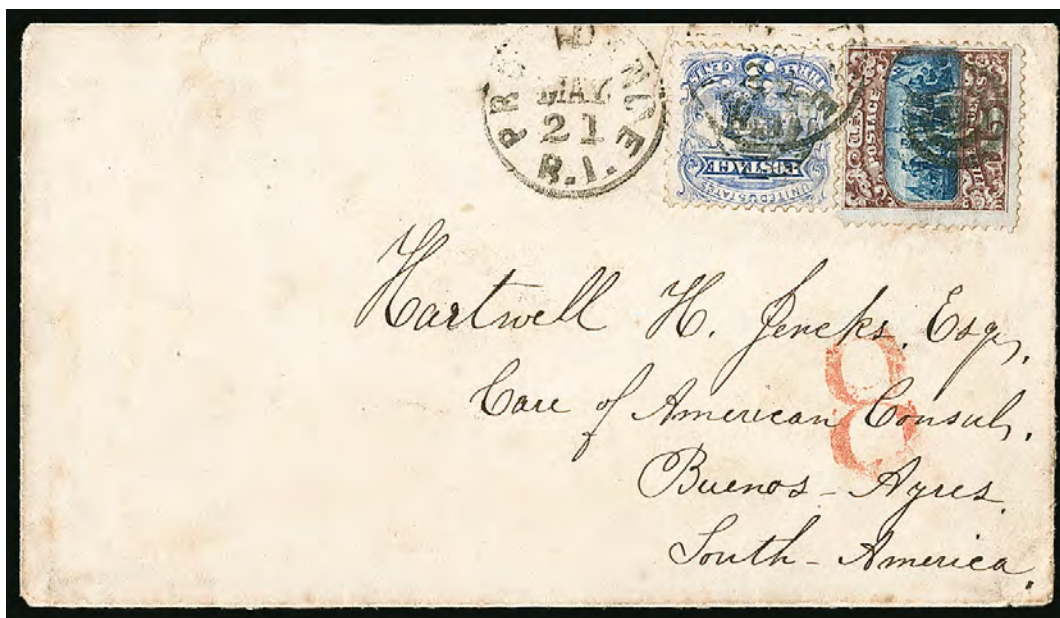 PROVIDENCE
MAY
21
R.I.
3
POSTAGE
UNITED STATES
U.S.
POSTAGE
Hartwell H. Jencks, Esq,.
Care of American Consul,.
Buenos-Ayres.
South-America.
8